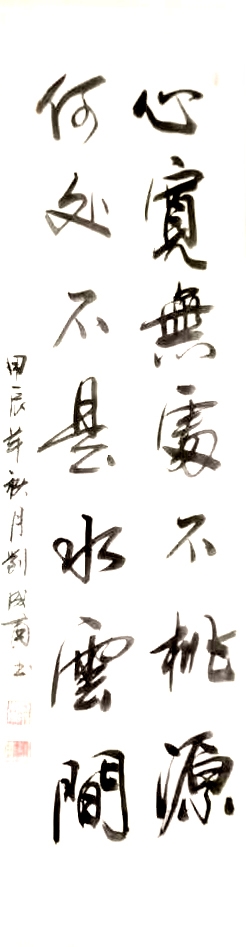 心寬無處不桃源
何处不是水雲間
甲辰年秋月劉成